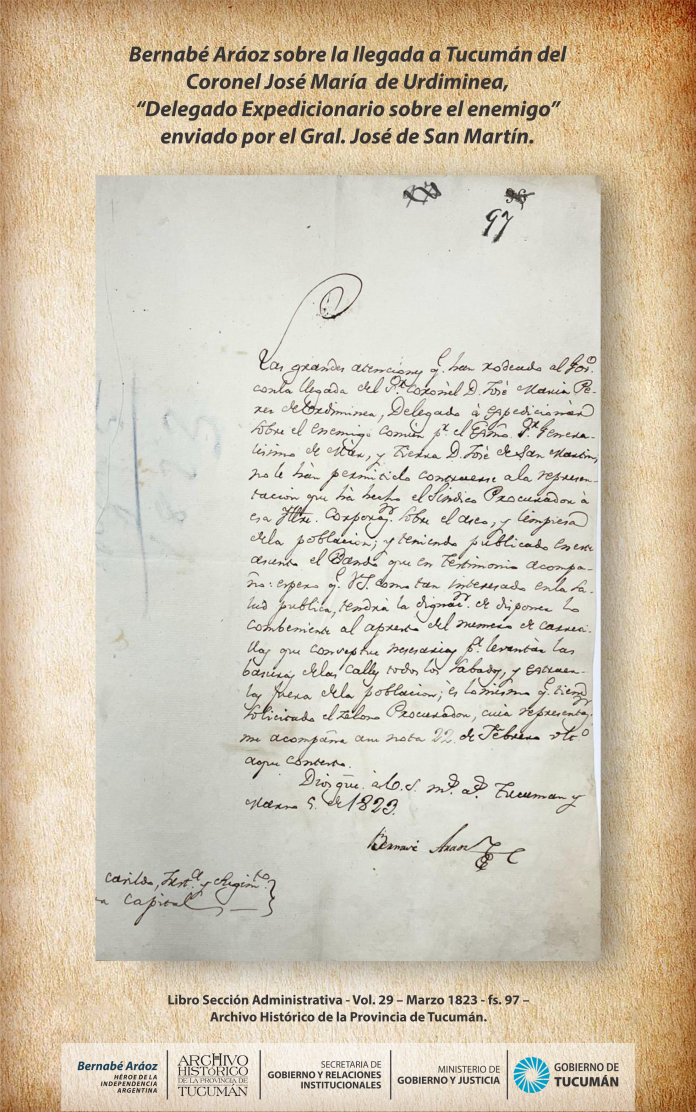 Bernabé Aráoz sobre la llegada a Tucumán del
Coronel José María de Urdiminea,
“Delegado Expedicionario sobre el enemigo”
enviado por el Gral. José de San Martín.
97
Las grandes atenciones q.e han rodeado al Gov.o
con la llegada del S.r Coronel D. José Maria Pe-
res de Urdiminea, Delegado à espedicionar
sobre el enemigo comun p.r el Exmo. S.r Genera-
lisimo de Mar, y Tierra D. José de San Martin,
no le han permitido contraerse a la represen-
tacion que hà hecho el Sindico Procurador à
esa Yltre. Corporaq.n sobre el aseo, y limpiesa
dela poblacion; y teniendo publicado en este
asunto el Bando que en testimonio acompa-
ño: espero q.e V.S. como tan interesado en la sa-
lud publica, tendrà la dignaq.n de disponer lo
combeniente al apresto del numero de carreti-
llas que conceptue nesesarias p.a levantar las
basuras delas calles todos los sabados, y estraer-
las fuera dela poblacion; es lo mismo q.e tiene
solicitado el zeloso Procurador, cuia representaq.n
me acompaña en nota 22 de Febrero ult.o
aque contesto.
Dios gue. à V.S. m.s a.s Tucuman y
Marzo 5. de 1823.
Bernave Araoz
Cavildo, Just.a y Regim.to
a Capital
Libro Sección Administrativa - Vol. 29 – Marzo 1823 - fs. 97 –
Archivo Histórico de la Provincia de Tucumán.
Bernabé Aráoz
HÉROE DE LA
INDEPENDENCIA
ARGENTINA
ARCHIVO
HISTÓRICO
DE LA PROVINCIA DE
TUCUMÁN
SECRETARIA DE
GOBIERNO Y RELACIONES
INSTITUCIONALES
MINISTERIO DE
GOBIERNO Y JUSTICIA
GOBIERNO DE
TUCUMÁN